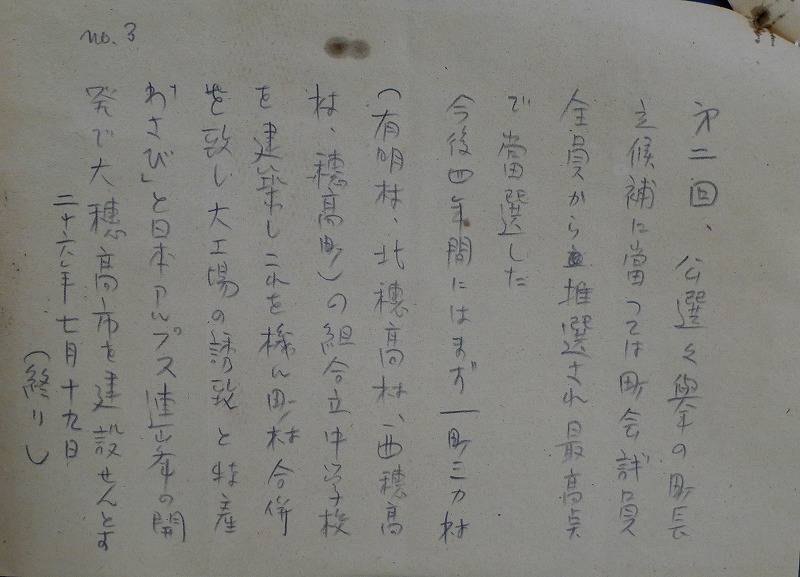 no.3
第二回、公選々挙の町長
立候補に當つては町会議員
全員から推選され最高点
で當選した
今後四年間にはまず一町三カ村
(有明村、北穂高村、西穂高
村、穂高町)の組合立中学校
を建築しこれを機に町村合併
を致し大工場の誘致と特産
わさび」と日本アルプス連峯の開
発で大穂高市を建設せんとす
二十六年七月十九日
(終りし